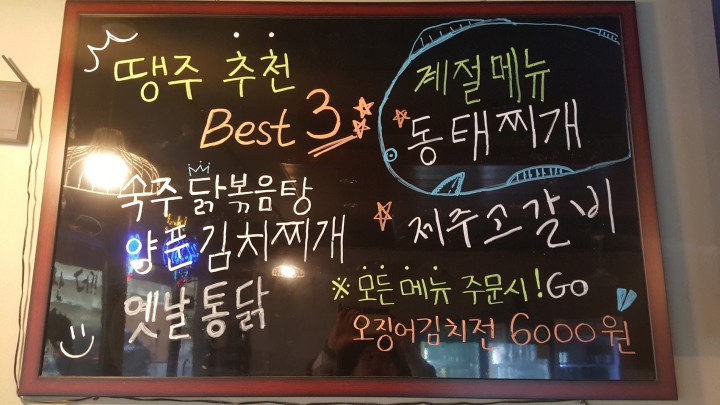 땡주 추천
Best 3
숙주 닭볶음탕
양푼 김치찌개
옛날 통닭
계절메뉴
동태찌개
제주고갈비
※ 모든 메뉴 주문시! Go
오징어김치전 6000원